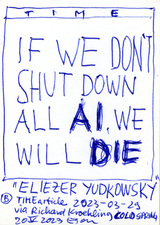 TIME
IF WE DON'T
SHUT DOWN
ALL AI, WE
WILL DIE
"ELIEZER YUDKOWSKY"
TIME article 2023-03-29
via Richard Kroehling COLD SPRING
20 V 2023